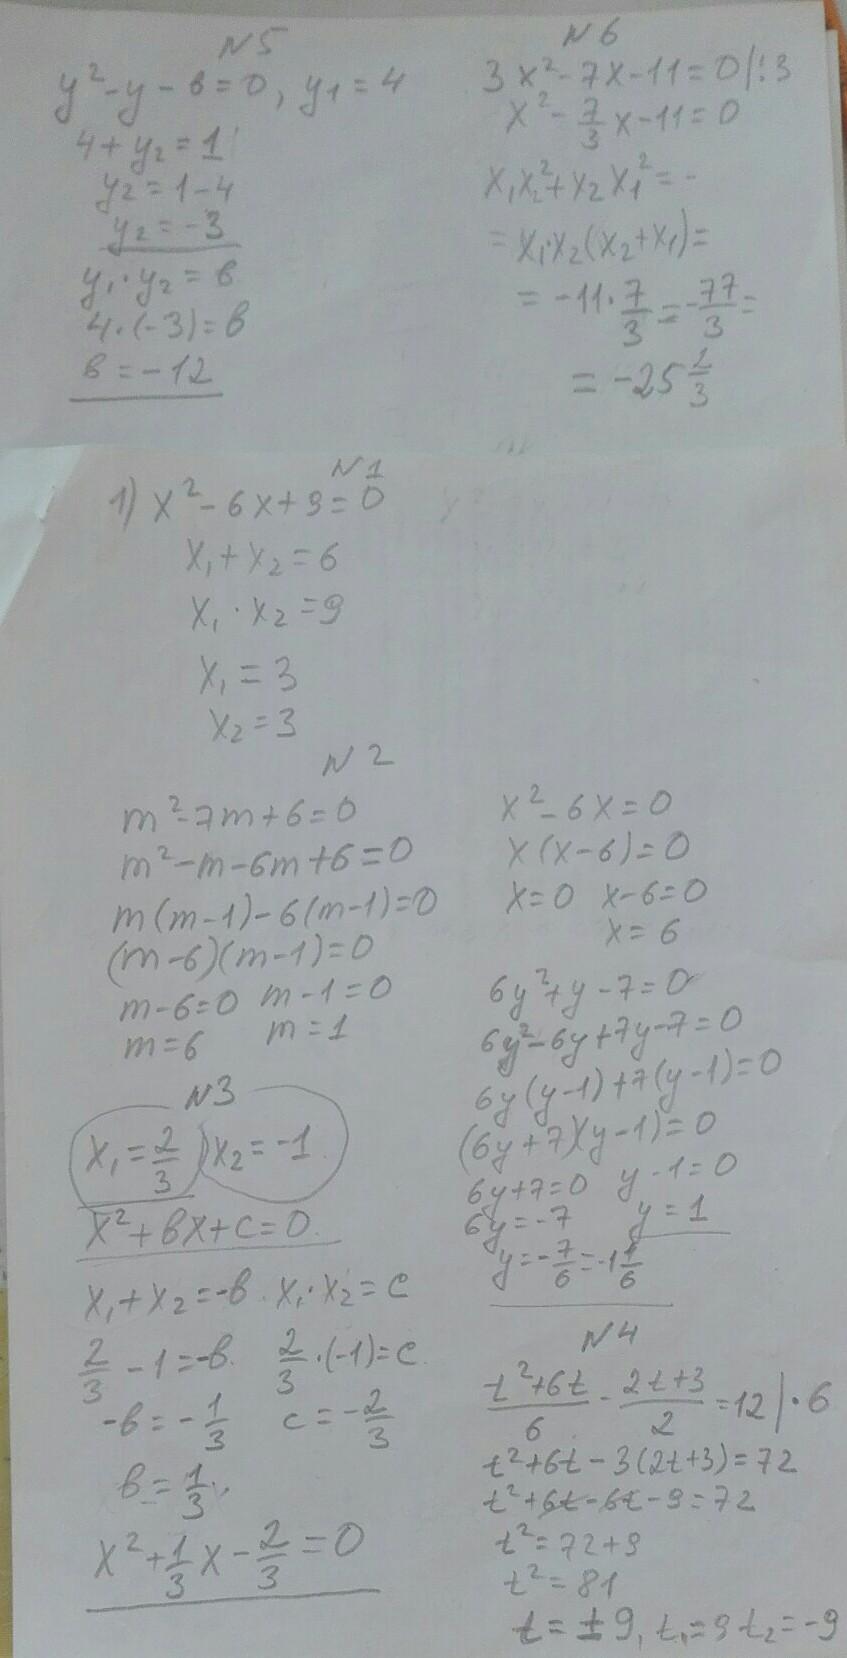 N5
y² - y - в = 0, y₁ = 4
4 + y₂ = 1
y₂ = 1 - 4
y₂ = -3
y₁ · y₂ = в
4 · (-3) = в
в = -12
N6
3x² - 7x - 11 = 0 |:3
x² - 7/3 x - 11 = 0
x₁x₂² + x₂x₁² = -
= x₁·x₂(x₂ + x₁) =
= -11 · 7/3 = -77/3 =
= -25 2/3
N1
1) x² - 6x + 9 = 0
x₁ + x₂ = 6
x₁ · x₂ = 9
x₁ = 3
x₂ = 3
N2
m² - 7m + 6 = 0
m² - m - 6m + 6 = 0
m(m - 1) - 6(m - 1) = 0
(m - 6)(m - 1) = 0
m - 6 = 0 m - 1 = 0
m = 6 m = 1
x² - 6x = 0
x(x - 6) = 0
x = 0 x - 6 = 0
x = 6
6y² + y - 7 = 0
6y² - 6y + 7y - 7 = 0
6y(y - 1) + 7(y - 1) = 0
(6y + 7)(y - 1) = 0
6y + 7 = 0 y - 1 = 0
6y = -7 y = 1
y = -7/6 = -1 1/6
N3
x₁ = 2/3 ) x₂ = -1
x² + вx + c = 0
x₁ + x₂ = -в. x₁ · x₂ = c
2/3 - 1 = -в. 2/3 · (-1) = c
-в = -1/3 c = -2/3
в = 1/3.
x² + 1/3 x - 2/3 = 0
N4
(t² + 6t)/6 - (2t + 3)/2 = 12 | · 6
t² + 6t - 3(2t + 3) = 72
t² + 6t - 6t - 9 = 72
t² = 72 + 9
t² = 81
t = ± 9, t₁ = 9 t₂ = -9